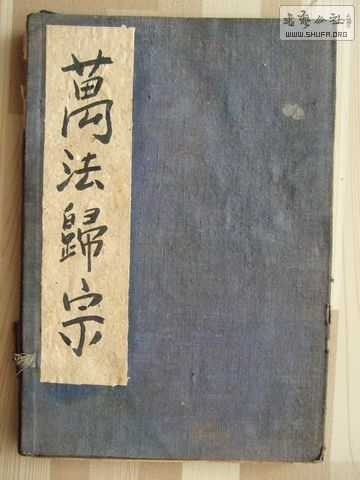 萬法歸宗
書藝公社
WWW.SHUFA.ORG